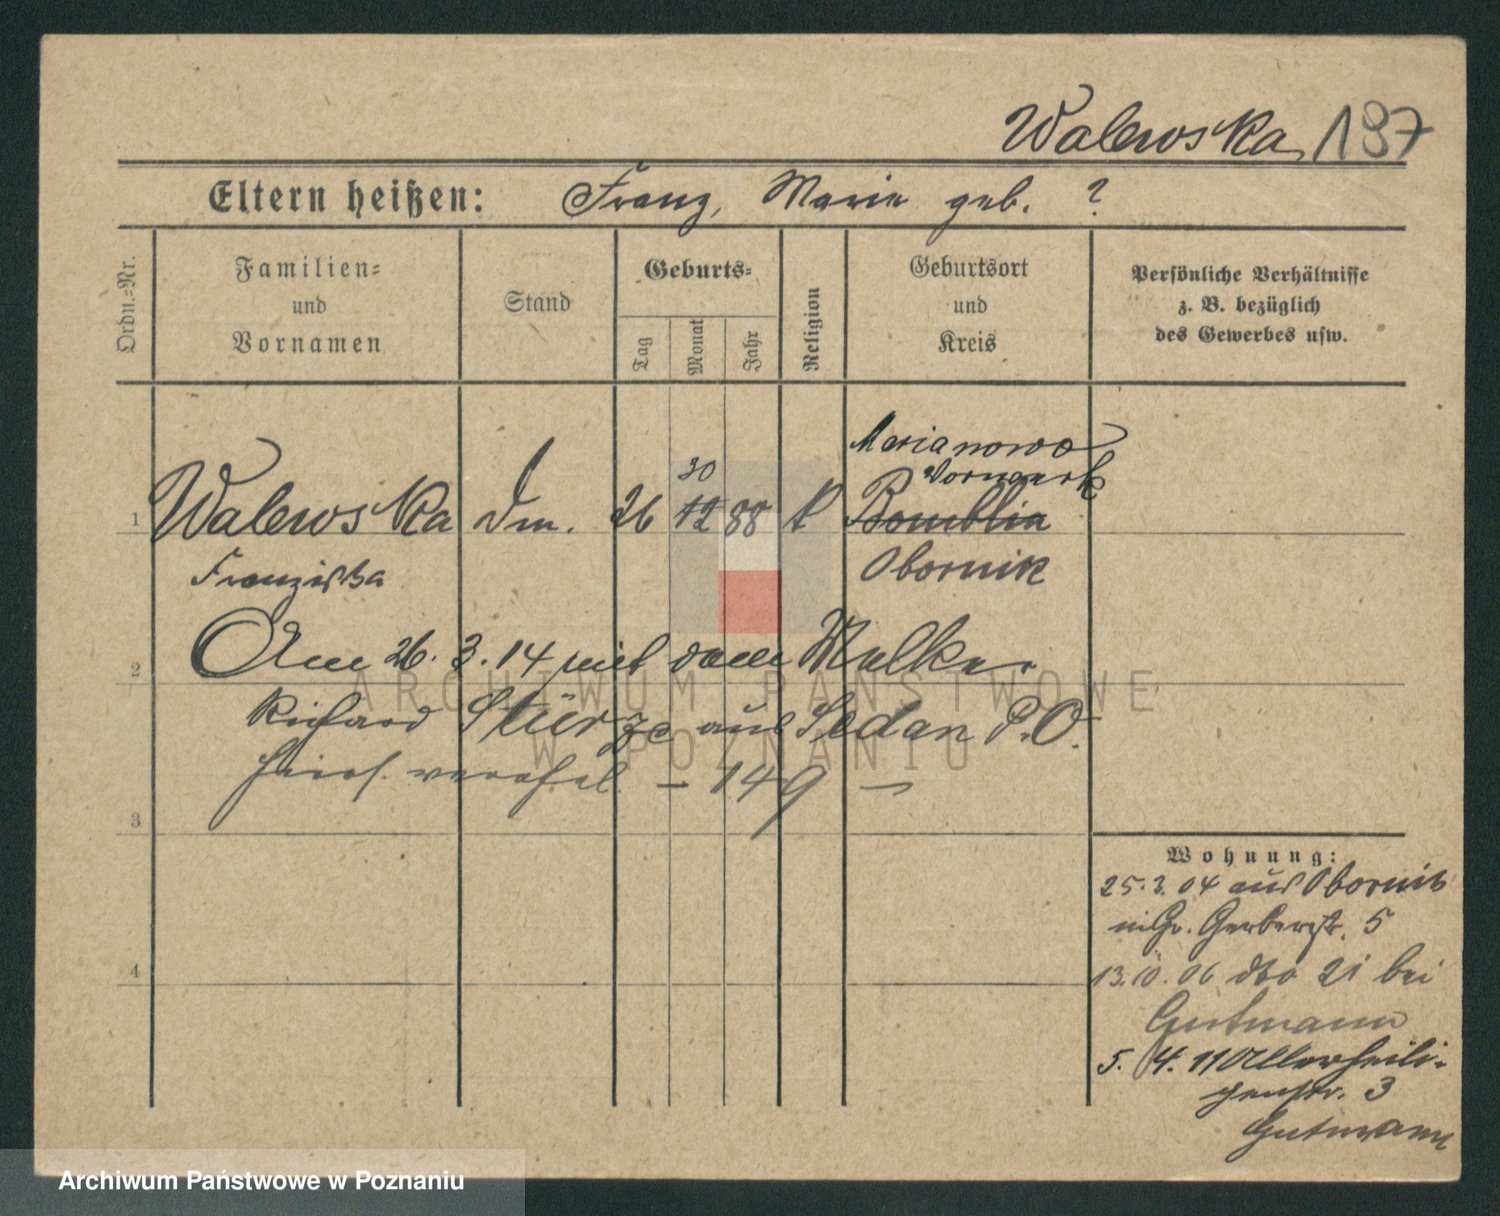 Walewska 137
Eltern heißen: Franz, Marie geb. ?
Ordn.-Nr.
Familien-
und
Vornamen
Stand
Geburts-
Tag
Monat
Jahr
Religion
Geburtsort
und
Kreis
Persönliche Verhältnisse
z. B. bezüglich
des Gewerbes usw.
Marianowo
Vorwerk
30
1 Walewska Dm. 26 12 88 k Bomblin
Franziska Obornik
Am 26. 3. 14 mit dem Melker
2
Richard Stürze aus Sedan P.O.
hier verehel. – 149 –
3
Wohnung:
25.3.04 aus Obornik
n. Gr. Gerberst. 5
13.10.06 dto 21 bei
4
Gutmann
5. 4. 11 Allerheili-
genstr. 3
Gutmann
ARCHIWUM PAŃSTWOWE
W POZNANIU
Archiwum Państwowe w Poznaniu